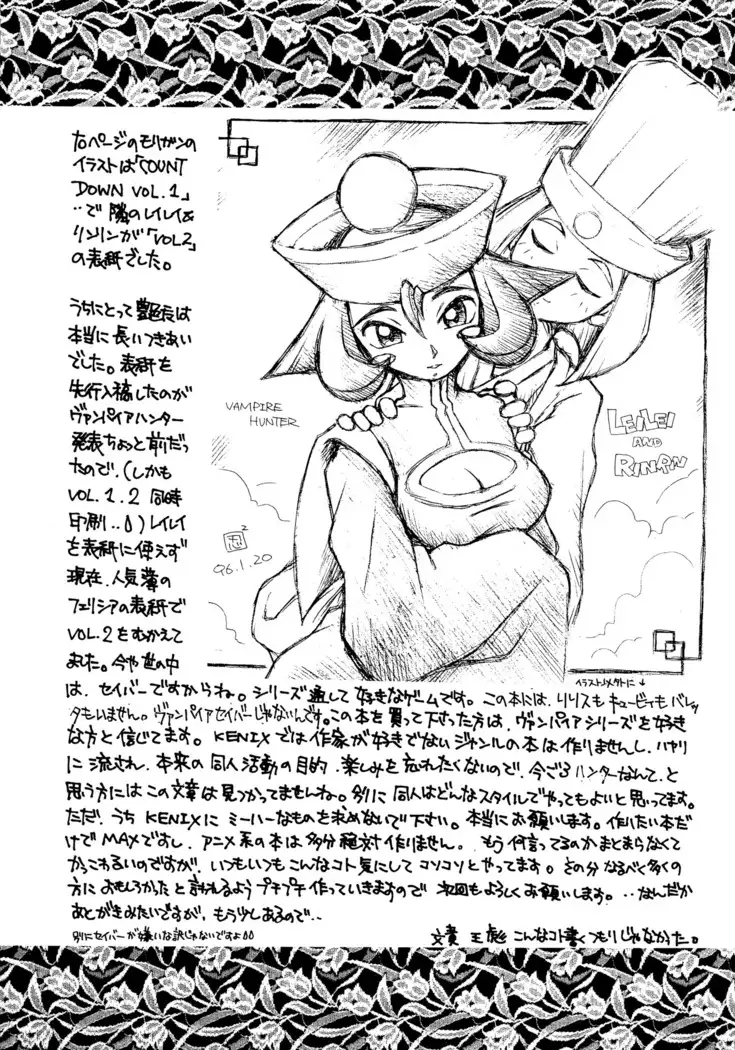 右ページのモリガンの
イラストは「COUNT
DOWN VOL.1」
‥で隣のレイレイ&
リンリンが「VOL2」
の表紙でした。
うちにとって艶長は
本当に長いつきあい
でした。表紙を
先行入稿したのが
ヴァンパイアハンター
発表ちょっと前だっ
たので、(しかも
VOL.1.2 同時
印刷‥)レイレイ
を表紙に使えず
現在、人気薄の
フェリシアの表紙で
VOL.2をむかえて
ました。今や世の中
は、セイバーですからね。シリーズ通して好きなゲームです。この本には、リリスもキュービィもバレッ
タもいません。ヴァンパイアセイバーじゃないんです。この本を買って下さった方は、ヴァンパイアシリーズを好き
な方と信じてます。KENIXでは作家が好きでないジャンルの本は作りませんし、ハヤリ
に流され、本来の同人活動の目的、楽しみを忘れたくないので、今ごろハンターなんて、と
思う方にはこの文章は見つかってませんね。別に同人はどんなスタイルでやってもよいと思ってます。
ただ、うちKENIXにミーハーなものを求めないで下さい。本当にお願いします。作りたい本だ
けでMAXですし、アニメ系の本は多分絶対作りません。もう何言ってるのかまとまらなくて
かっこわるいのですが、いつもいつもこんなコト気にしてコソコソとやってます。その分なるべく多くの
方におもしろかったと言われるようプチプチ作っていきますので次回もよろしくお願いします。‥なんだか
あとがきみたいですが、もう少しあるので‥
別にセイバーが嫌いな訳じゃないですよ
文責 王 こんなコト書くつもりじゃなかった。
VAMPIRE
HUNTER
LEILEI
AND
RINRIN
96.1.20
イラストノメクトに↓